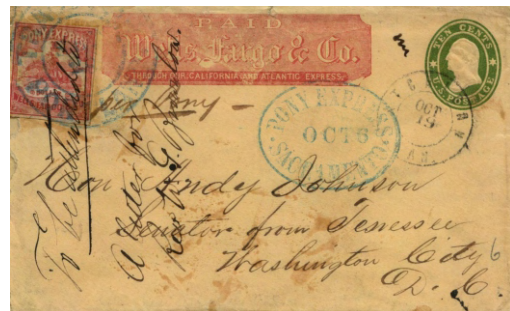 PAID
Wells, Fargo & Co.
THROUGH OUR CALIFORNIA AND ATLANTIC EXPRESS.
PONY EXPRESS
TEN CENTS
U.S. POSTAGE
OCT
19
PONY EXPRESS
OCT 6
SACRAMENTO
per Pony
Hon Andy Johnson
Senator from Tennessee
Washington City
D. C.
6
To be
A letter